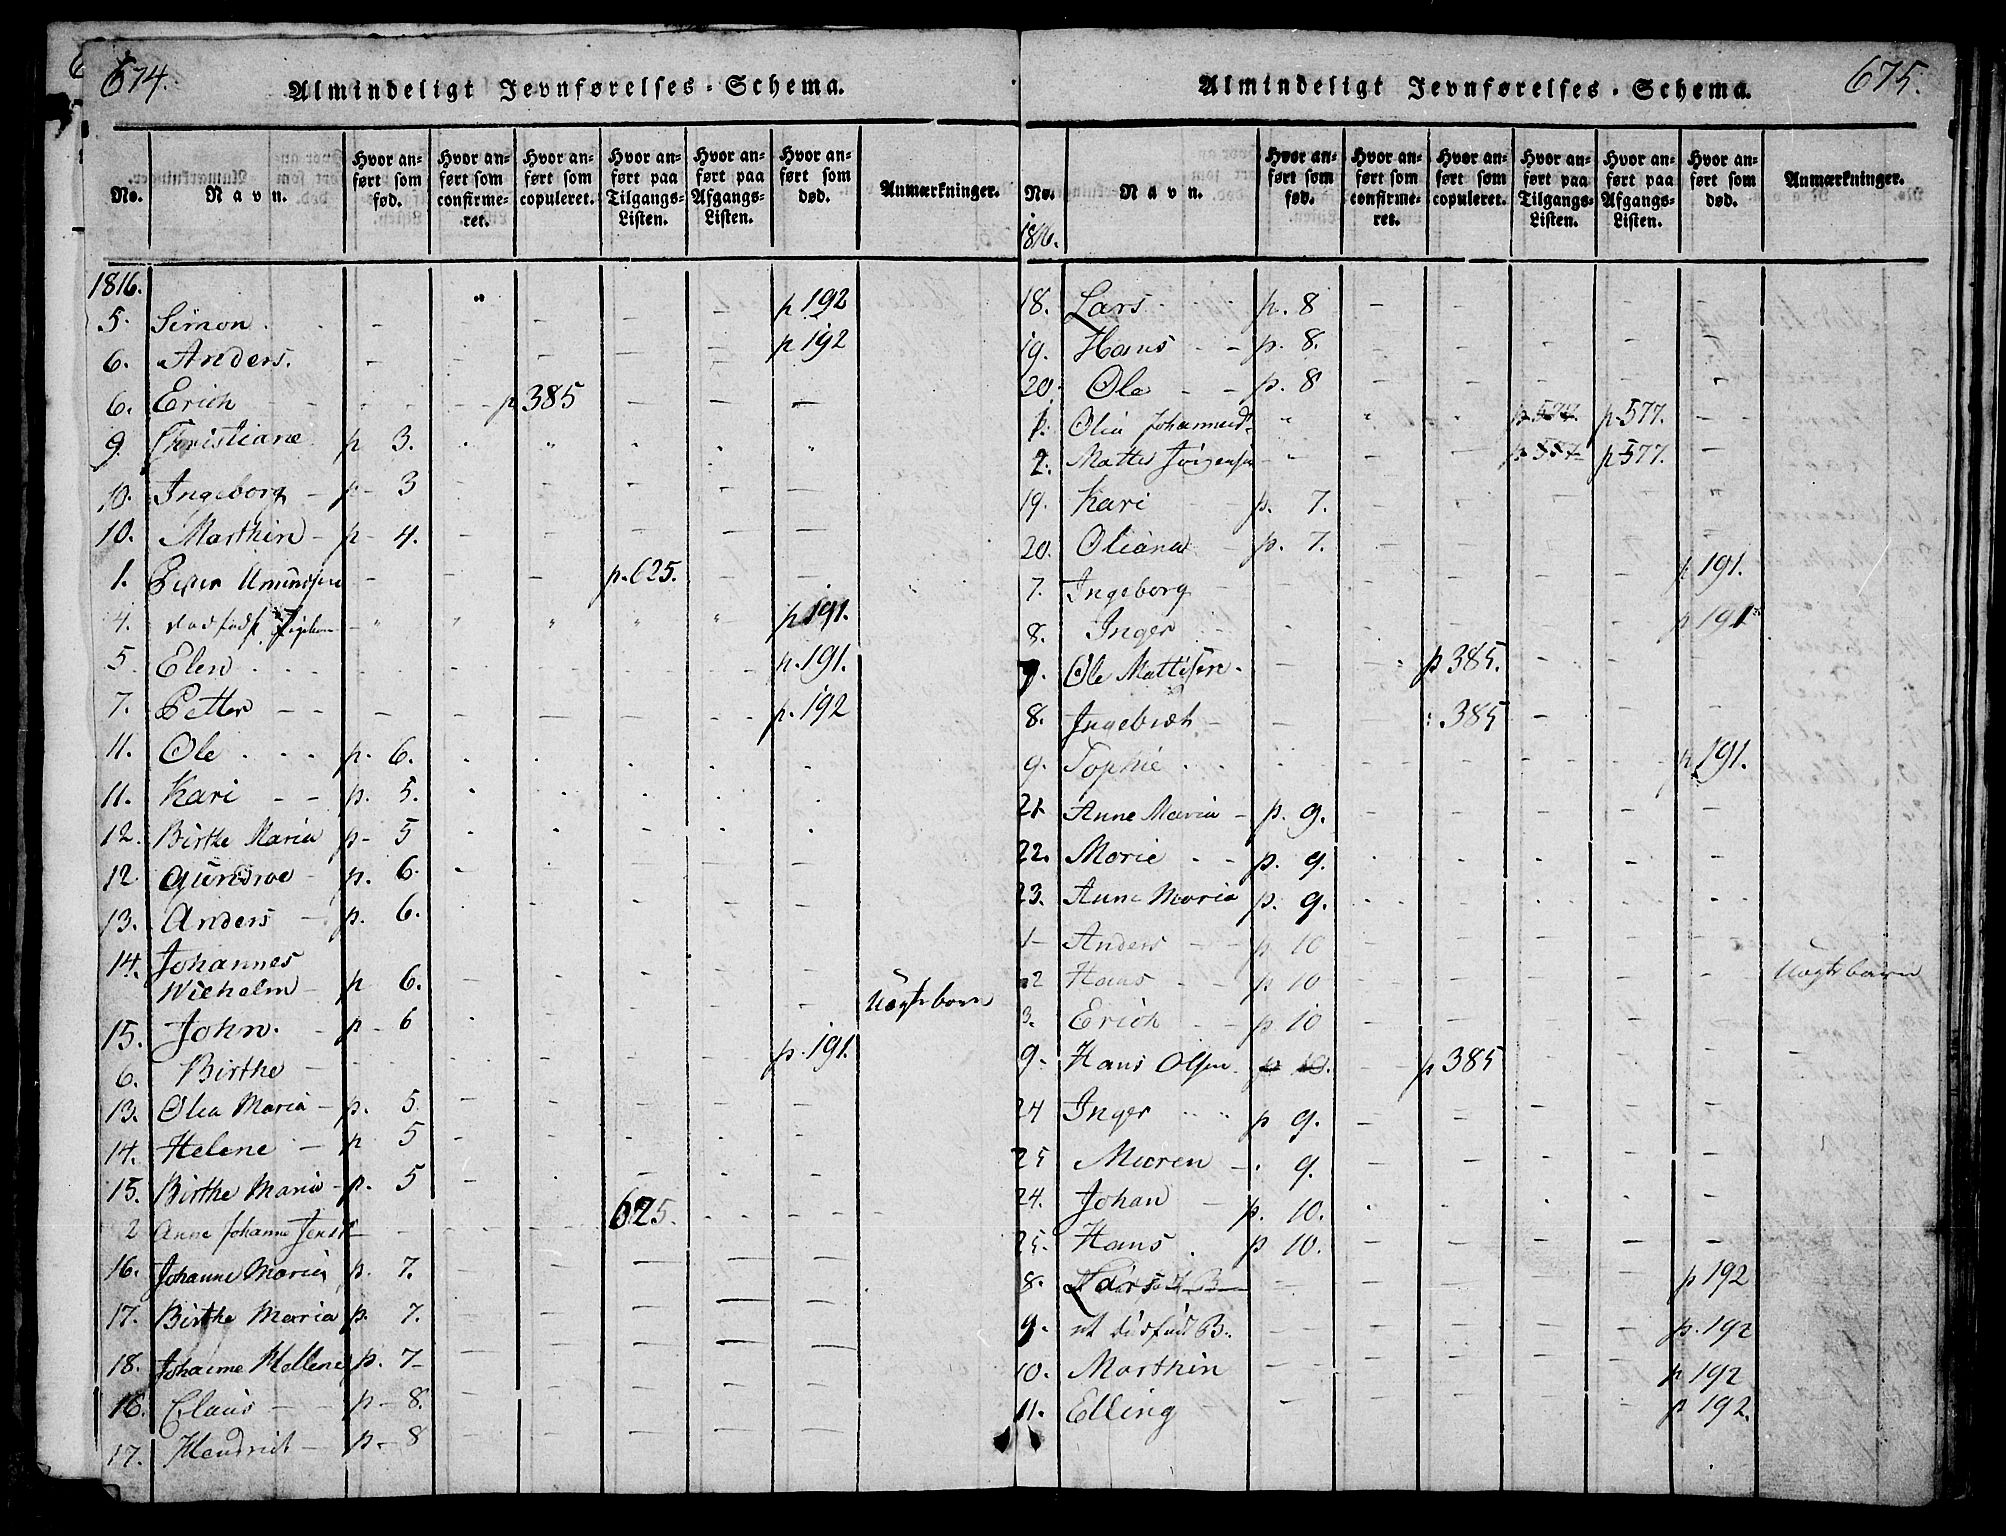 674.
Almindeligt Jevnførelses-Schema.
No.
Navn.
Hvor an-
ført som
fød.
Hvor an-
ført som
confirme-
ret.
Hvor an-
ført som
copuleret.
Hvor an-
ført paa
Tilgangs-
Listen.
Hvor an-
ført paa
Afgangs-
Listen.
Hvor an-
ført som
død.
Anmærkninger.
1816.
5. Simon p 192
6. Anders. p 192
6. Erich p 385
9. Christiane p 3.
10. Ingeborg p 3
10. Marthin p 4.
1. Peter Amundsen p. 625.
4. p 191.
5. Elen p. 191.
7. Petter p. 192
11. Ole p. 6.
11. Kari p. 5.
12. Birthe Maria p 5
12 Gundroe p. 6.
13. Anders p. 6.
14. Johannes
Wilhelm p 6.
15. John. p 6 Uægte barn
6. Birthe p. 191.
13. Olea Maria p. 5
14. Helene p 5
15. Birthe Maria p. 5
2 Anne Johanne Jensd 625.
16. Johanne Maria p. 7.
17. Birthe Maria p. 7.
18. Johanne Hellene p. 7
16. Claus p 8.
17. Hendrich p. 8
675.
Almindeligt Jevnførelses-Schema.
No.
Navn.
Hvor an-
ført som
fød.
Hvor an-
ført som
confirme-
ret.
Hvor an-
ført som
copuleret.
Hvor an-
ført paa
Tilgangs-
Listen.
Hvor an-
ført paa
Afgangs-
Listen.
Hvor an-
ført som
død.
Anmærkninger.
1816.
18. Lars p. 8
19. Hans p. 8.
20. Ole p. 8
1. Olia Johannesd p 577. p 577.
2. Mattis Jørgensen p 577 p 577.
19. Kari p. 7.
20. Oliana p. 7.
7. Ingeborg p 191.
8. Inger p 191
7. Ole Mattisen p 385.
8. Ingebreth 385
9. Sophie p 191.
21 Anne Maria p. 9.
22. Marie p. 9.
23. Anne Maria p. 9.
1 Anders p 10
2 Hans p 10 Uægte barn
3. Erich p 10
9. Hans Olsen p 10. p 385
24 Inger p 9.
25 Maren 9.
24. Johan p. 10.
25. Hans p 10.
8. Lars p 192
9. et dødfød B. p. 192
10. Marthin p 192
11. Elling p 192.